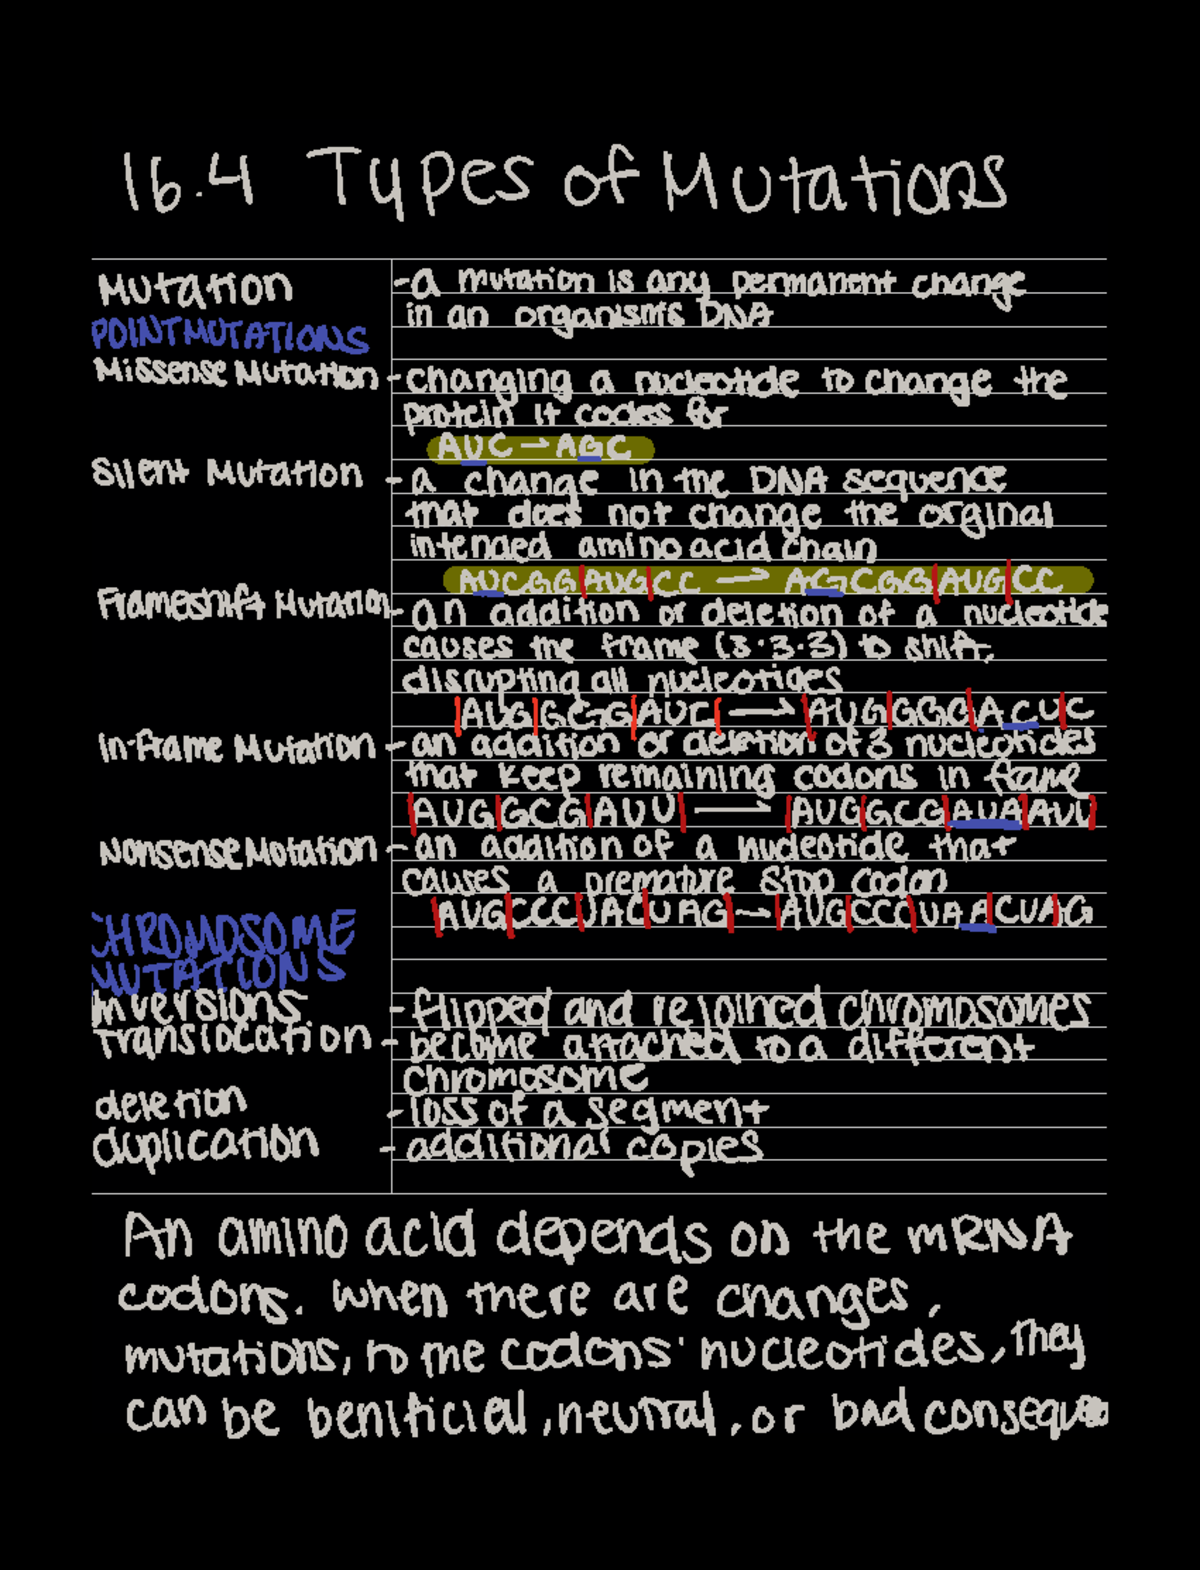 16.4 Types of Mutations
Mutation
-a mutation is any permanent change
in an organisms DNA
POINT MUTATIONS
Missense Mutation
-changing a nucleotide to change the
protein it codes for
AUC → AGC
Silent Mutation
-a change in the DNA sequence
that does not change the orginal
intended amino acid chain
AUCGG|AUG|CC → AGCGG|AUG|CC
Frameshift Mutation
-an addition or deletion of a nucleotide
causes the frame (3·3·3) to shift,
disrupting all nucleotides
|AUG|GCGG|AUC| → |AUG|GGG|ACU|C
In-Frame Mutation
-an addition or deletion of 3 nucleotides
that keep remaining codons in frame
|AUG|GCG|AUU| → |AUG|GCG|AUA|AUU|
Nonsense Motation
-an addition of a nucleotide that
causes a premature stop codon
|AUG|CCC|UAC|UAG| → |AUG|CCC|UAA|CUA|G
CHROMOSOME
MUTATIONS
Inversions
-flipped and rejoined chromosomes
translocation
-become attached to a different
chromosome
deletion
-loss of a segment
duplication
-additional copies
An amino acid depends on the mRNA
codons. When there are changes,
mutations, to the codons' nucleotides, they
can be benificial, neutral, or bad